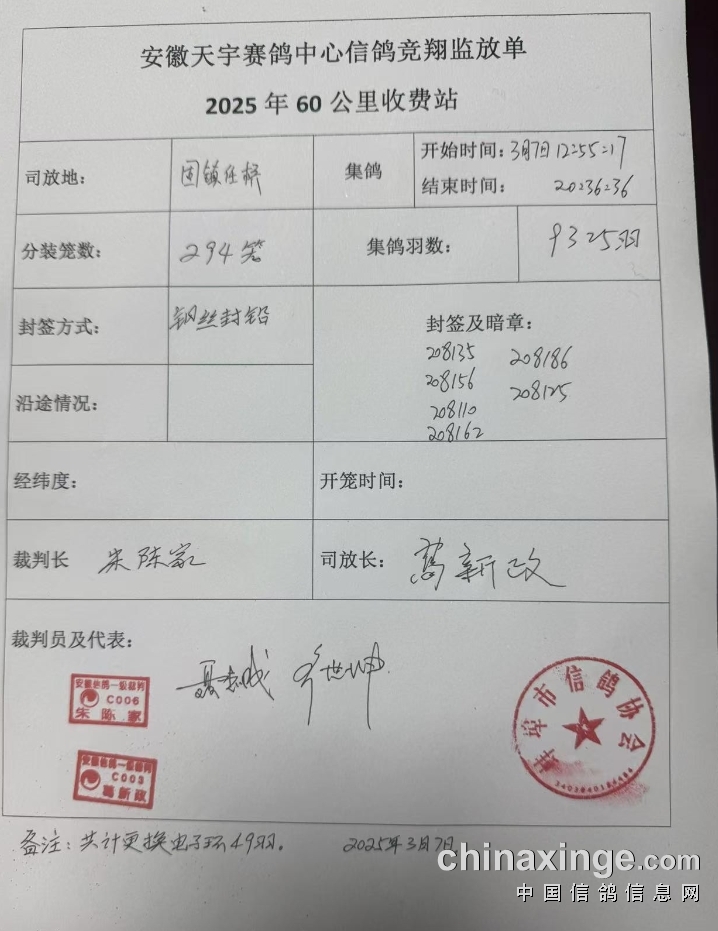 安徽天宇赛鸽中心信鸽竞翔监放单
2025 年 60 公里收费站
司放地： 固镇任桥
集鸽
开始时间：3月7日12:55:17
结束时间： 20:36:36
分装笼数： 294笼
集鸽羽数： 9325羽
封签方式： 钢丝封铅
封签及暗章：
208135 208186
208156 208125
208110
208162
沿途情况：
经纬度：
开笼时间：
裁判长 朱陈家
司放长： 葛新政
裁判员及代表：
安徽信鸽一级裁判
C006
朱陈家
安徽信鸽一级裁判
C003
葛新政
蚌埠市信鸽协会
备注：共计更换电子环49羽。 2025年3月7日
chinaxinge.com
中国信鸽信息网